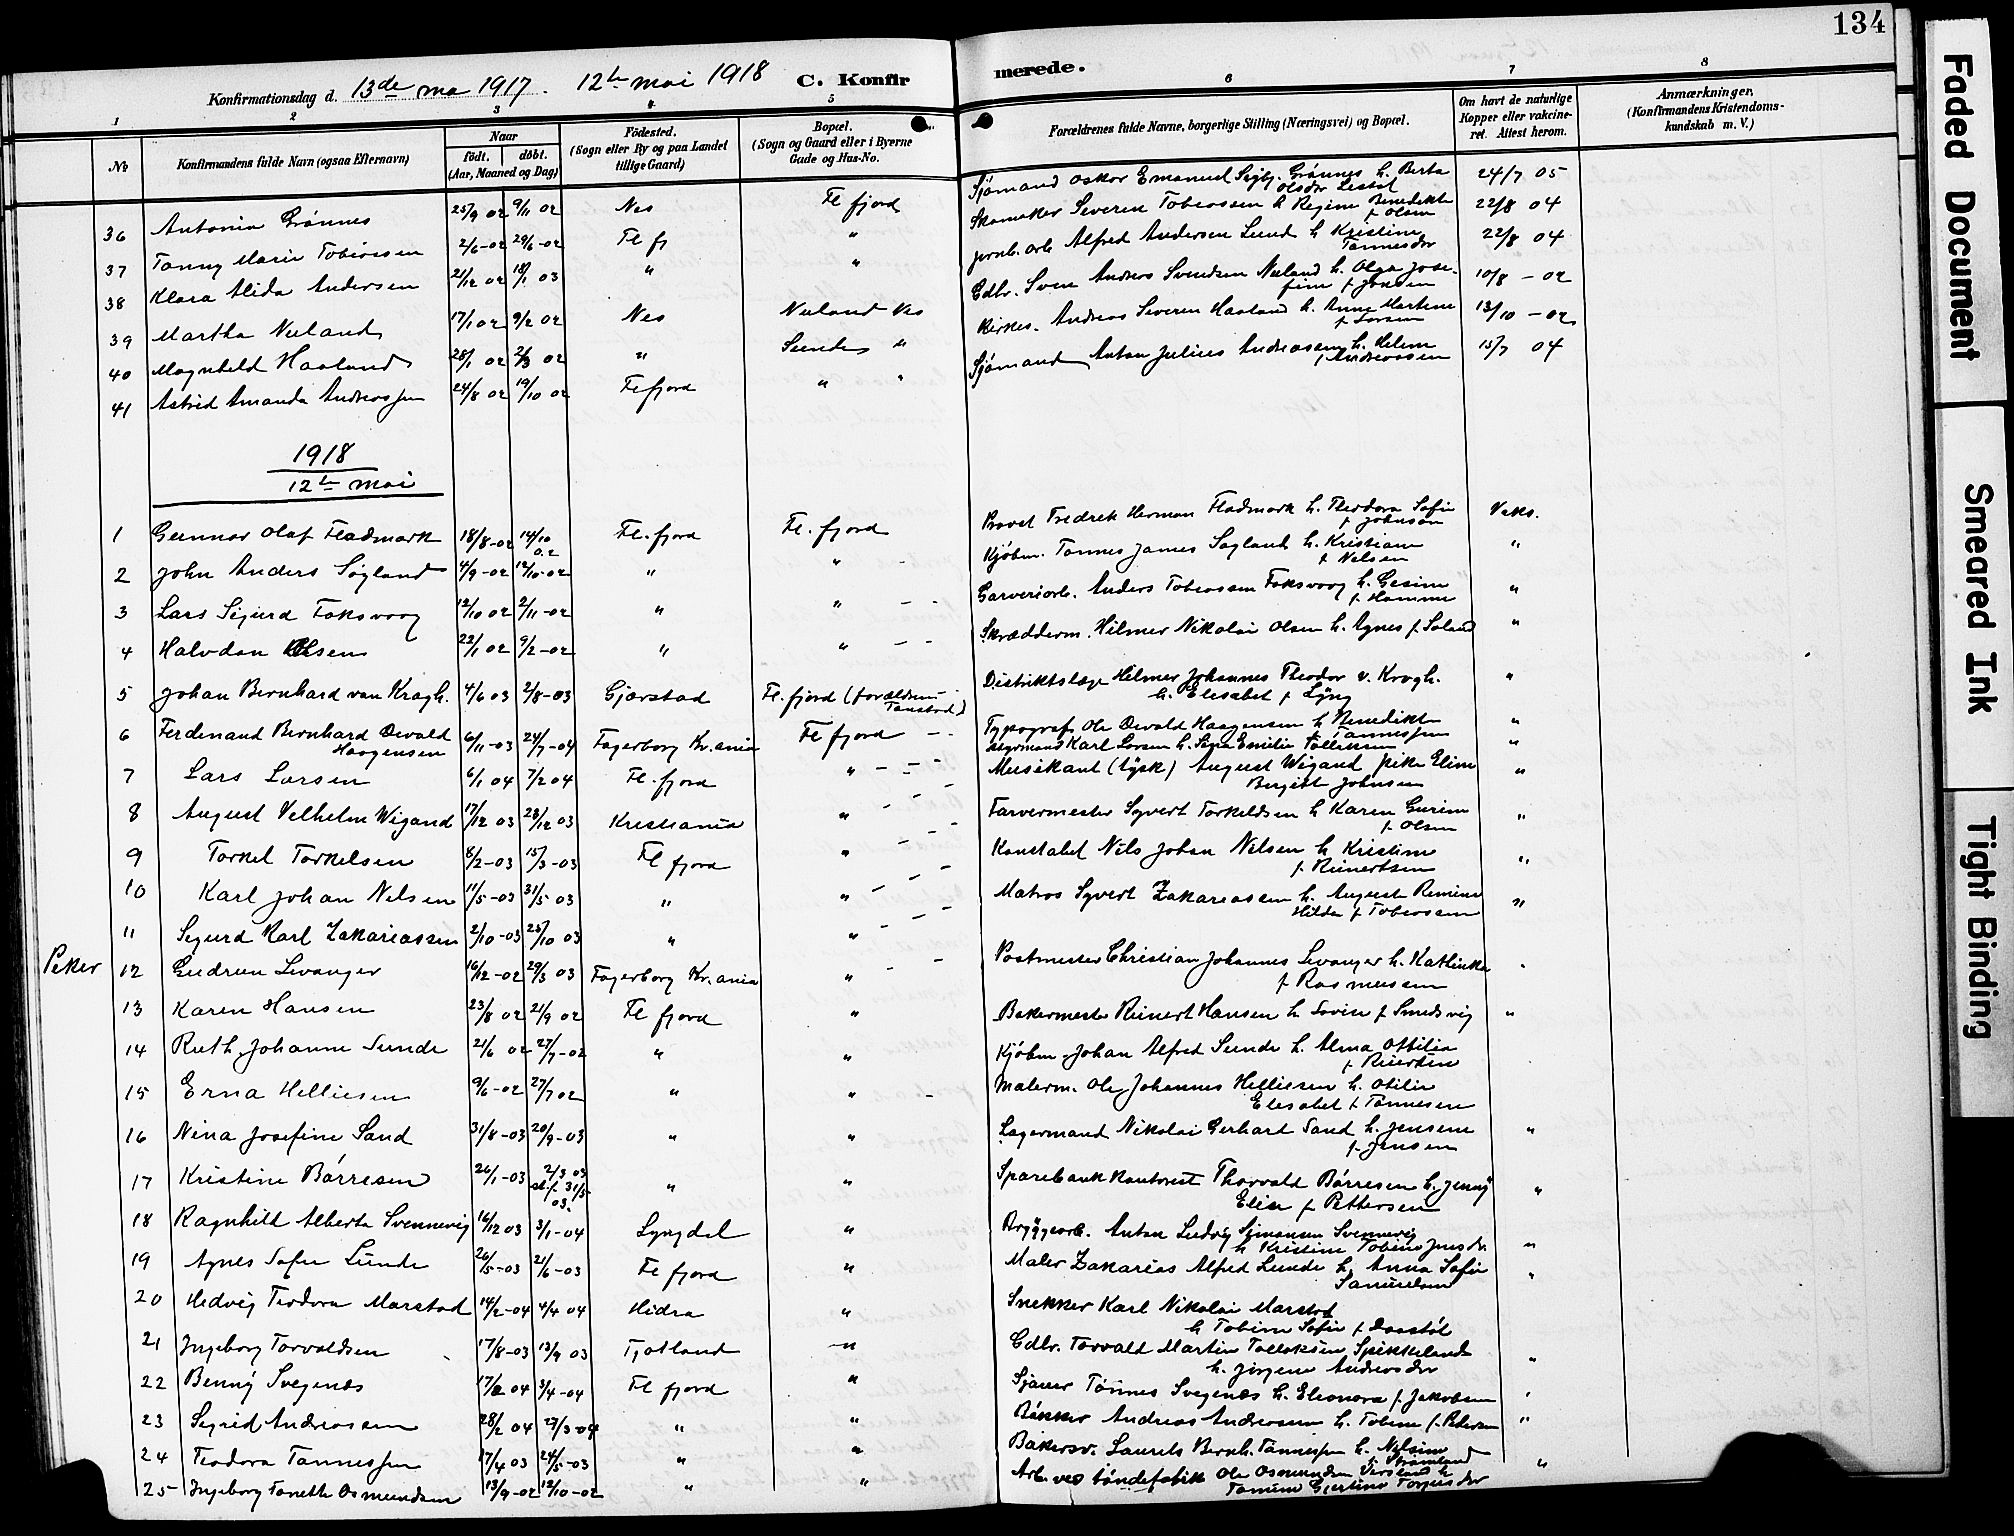 134
Faded Document
Smeared Ink
Tight Binding
Konfirmationsdag d. 13de mai 1917. 12te mai 1918 C. Konfirmerede.
1 2 3 4 5 6 7 8
No
Konfirmandens fulde Navn (ogsaa Efternavn)
Naar
født. døbt.
(Aar, Maaned og Dag)
Fødested.
(Sogn eller By og paa Landet
tillige Gaard)
Bopæl.
(Sogn og Gaard eller i Byerne
Gade og Hus-No.
Forældrenes fulde Navne, borgerlige Stilling (Næringsvei) og Bopæl.
Om havt de naturlige
Kopper eller vakcine-
ret. Attest herom.
Anmærkninger.
(Konfirmandens Kristendoms-
kundskab m. V.)
36 Antonia Grønnes 25/9 02 9/11 02 Nes Fl fjord Sjømand Oskar Emanuel Sigbj. Grønnes h. Berta Olsdr 24/7 05
37 Tanny Marie Tobiassen 2/6-02 29/6-02 Fl fj " Skomaker Severin Tobiassen h Regine Benedikte f Olsen 22/8 04
38 Klara Alida Andersen 21/12 02 18/1 03 " " jernb. arb Alfred Andersen Lund h Kristine Tønnesdr 22/8 04
39 Martha Nuland 17/1 02 9/2 02 Nes Nuland Nes Gdbr. Sven Andreas Svendsen Nuland h. Olga Josefine f Jonsen 10/8 - 02
40 Magnhild Haaland 28/1 02 2/3 02 " Sunde " Kirkes. Andreas Severin Haaland h. Anne Martine f Larsen 13/10 - 02
41 Astrid Amanda Andreassen 24/8 02 19/10 02 Flefjord " " Sjømand Anton Julius Andreasen h. Helene f Andreassen 15/7 04
1918
12te mai
1 Gunnar Olaf Fladmark 18/8-02 14/10 02 Fl. fjord Fl. fjord Provst Fredrik Herman Fladmark h. Theodora Sofie f Johnson Vaks.
2 John Anders Søyland 4/9-02 12/10-02 " " - Kjøbm. Tønnes James Søyland h. Kristiane f Nelsen "
3 Lars Sigurd Foksvaag 12/10 02 2/11-02 " " - - Garveriarb. Anders Tobiassen Foksvaag h. Gesine f. Hamme "
4 Halvdan Olsen 22/1 02 9/2-02 " " - - Skrædderm. Hilmer Nikolai Olsen h. Agnes f. Søland "
5 Johan Bernhard van Krogh. 4/6 03 2/8-03 Gjerstad Fl. fjord (forældrene Tanstad) Distriktslæge Hilmer Johannes Theodor v. Krogh. h. Elisabet f Lyng "
6 Ferdinand Bernhard Osvald Haagensen 6/11-03 24/7-04 Fagerborg Kr.ania Fl fjord - - Typograf Ole Osvald Haagensen h Benedikte f Tønnessen "
7 Lars Larsen 6/1 04 7/2 04 Fl. fjord " - - - Karl Larsen h. Sina Emilie Tollaksen "
8 August Velhelm Wigand 17/12 03 28/12 03 Kristiania " Musikant (tysk) August Wigand pike Eline Bergitt Johnsen "
9 Torkel Torkelsen 8/2-03 15/3-03 Fl fjord " Farvermester Syvert Torkeldsen h Karen Gurine f. Olsen "
10 Karl Johan Nelsen 11/5-03 31/5 03 " " Konstabel Nils Johan Nelsen h Kristine f Reinertsen "
11 Sigurd Karl Zakariassen 2/10-03 25/10 03 " " Matros Syvert Zakariassen h. August Remine Hilda f Tobiassen "
Piker 12 Gudrun Levanger 16/12-02 29/3 03 Fagerborg Kr.ania " Postmester Christian Johannes Levanger h. Kathinka f Rasmussen
13 Karen Hansen 23/8 02 21/9 02 Fl fjord " Bakermester Reinert Hansen h Lovise f Smedsvig "
14 Ruth Johanne Sunde 21/6 02 27/7-02 " " Kjøbm. Johan Alfred Sunde h. Alma Ottilia f Reiersen
15 Erna Helliesen 9/6-02 27/7 02 " " - Malerm. Ole Johannes Helliesen h. Otilie Elisabet f Tønnesen
16 Nina Josefine Sand 31/8-03 20/9-03 " " Lagermand Nikolai Gerhard Sand h. Jensine f. Jensen "
17 Kristine Børresen 26/1-03 2/3 03 st.f. 31/5 03. " " Sparebankkontorist Thorvald Børresen h. Jenny Elise f Pettersen "
18 Ragnhild Alberta Svennevig 16/12 03 3/1-04 Lyngdal " Bryggearb. Anton Ludvig Simonsen Svennevig h Kristine Tobine Jensdr. "
19 Agnes Sofie Lunde 26/5-03 21/6-03 Fl fjord " Maler Zakarias Alfred Lunde h Anna Sofie Samuelsen "
20 Hedvig Teodora Marstad 14/2-04 4/4 04 Hidra " Snekker Karl Nikolai Marstad h Tobine Sofie f Daastøl
21 Ingeborg Torvaldsen 17/8-03 13/9 03 Fjotland " Gdbr. Torvald Martin Tollaksen Spikkeland h. Jørgine Andreasdr "
22 Benny Svegenes 17/2 04 3/4-04 Fl fjord " Sjauer Tønnes Svegenes h. Eleonora f. Jakobsen "
23 Sigrid Andreassen 28/2 04 27/3-04 " " Bøkker Andreas Andreassen h. Tobine f. Pedersen "
24 Teodora Tønnessen 17/4 03 24/5-03 " " Bakersv. Laurits Bernh. Tønnessen h. Nelsine f Strømland
25 Ingeborg Tonette Osmundsen 13/9-02 12/10-02 " " Arb. ved tøndefabrik Ole Osmundsen h Tomine Gjertine Torjusdr "